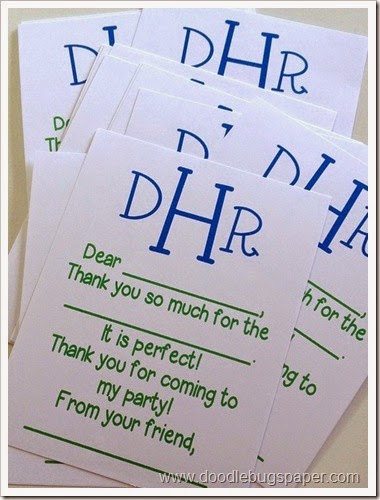 DHR
DHR
DHR
DHR
Dear ____________,
Thank you so much for the
____________________.
It is perfect!
Thank you for coming to
my party!
From your friend,
____________________
De
Tha
ch for the
ing to
www.doodlebugspaper.com